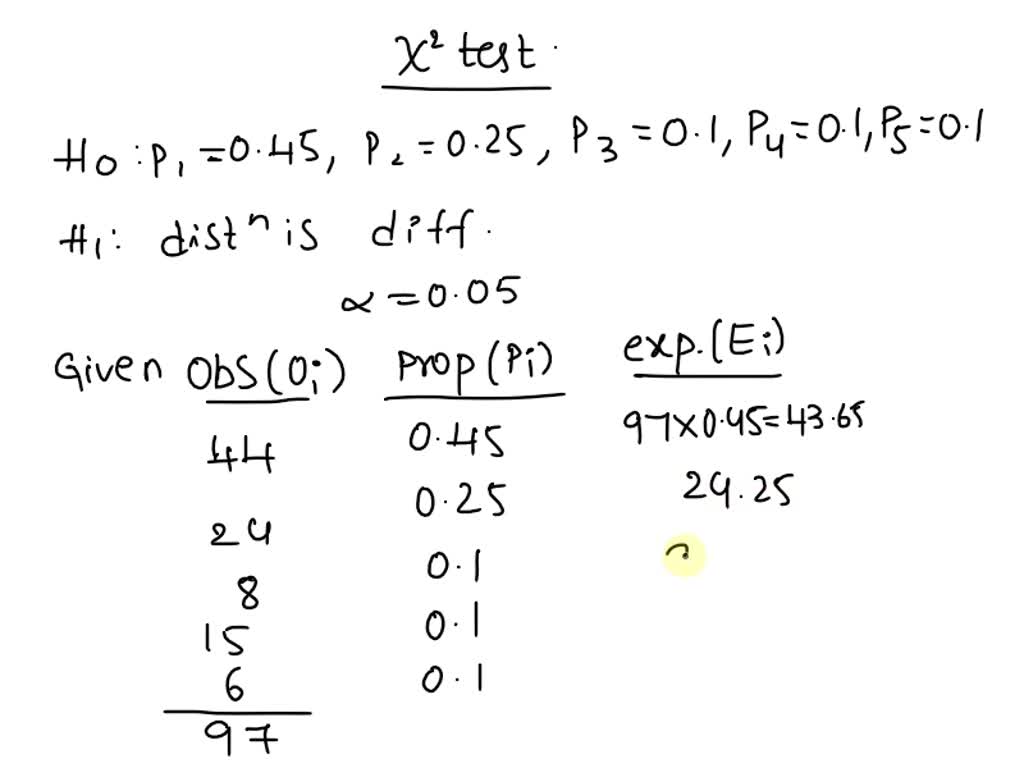 χ² test
H0 : P1 = 0.45, P2 = 0.25, P3 = 0.1, P4 = 0.1, P5 = 0.1
H1: distⁿ is diff.
α = 0.05
Given Obs(Oi) Prop(Pi) exp.(Ei)
44 0.45 97×0.45=43.65
24 0.25 24.25
8 0.1
15 0.1
6 0.1
97